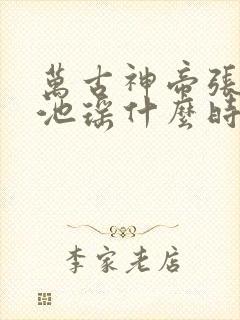 萬古神帝張
池瑤什麼時
李家老店